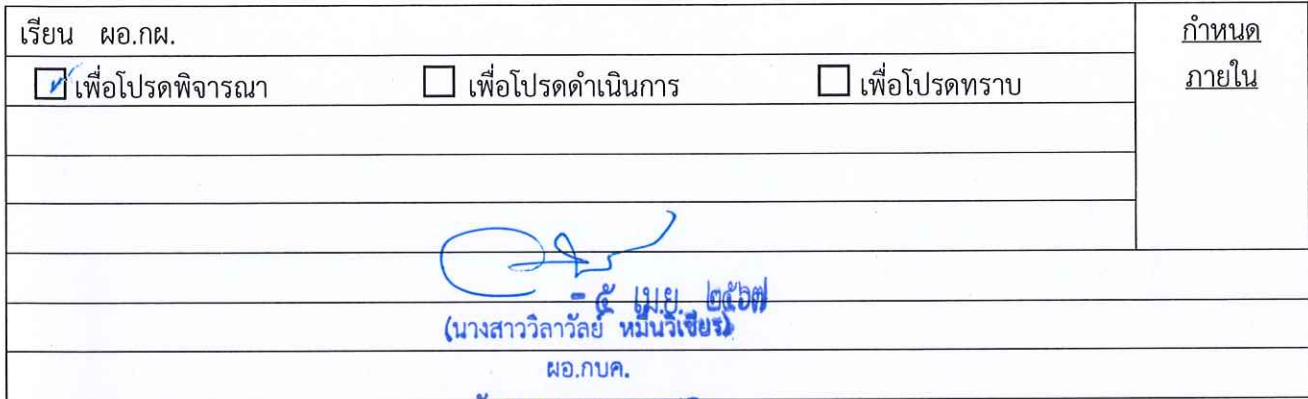 เรียน ผอ.กผ.
กำหนด
ภายใน
เพื่อโปรดพิจารณา
เพื่อโปรดดำเนินการ
เพื่อโปรดทราบ
- ๕ เม.ย. ๒๕๖๗
(นางสาววิลาวัลย์ หมื่นวิเชียร)
ผอ.กบค.